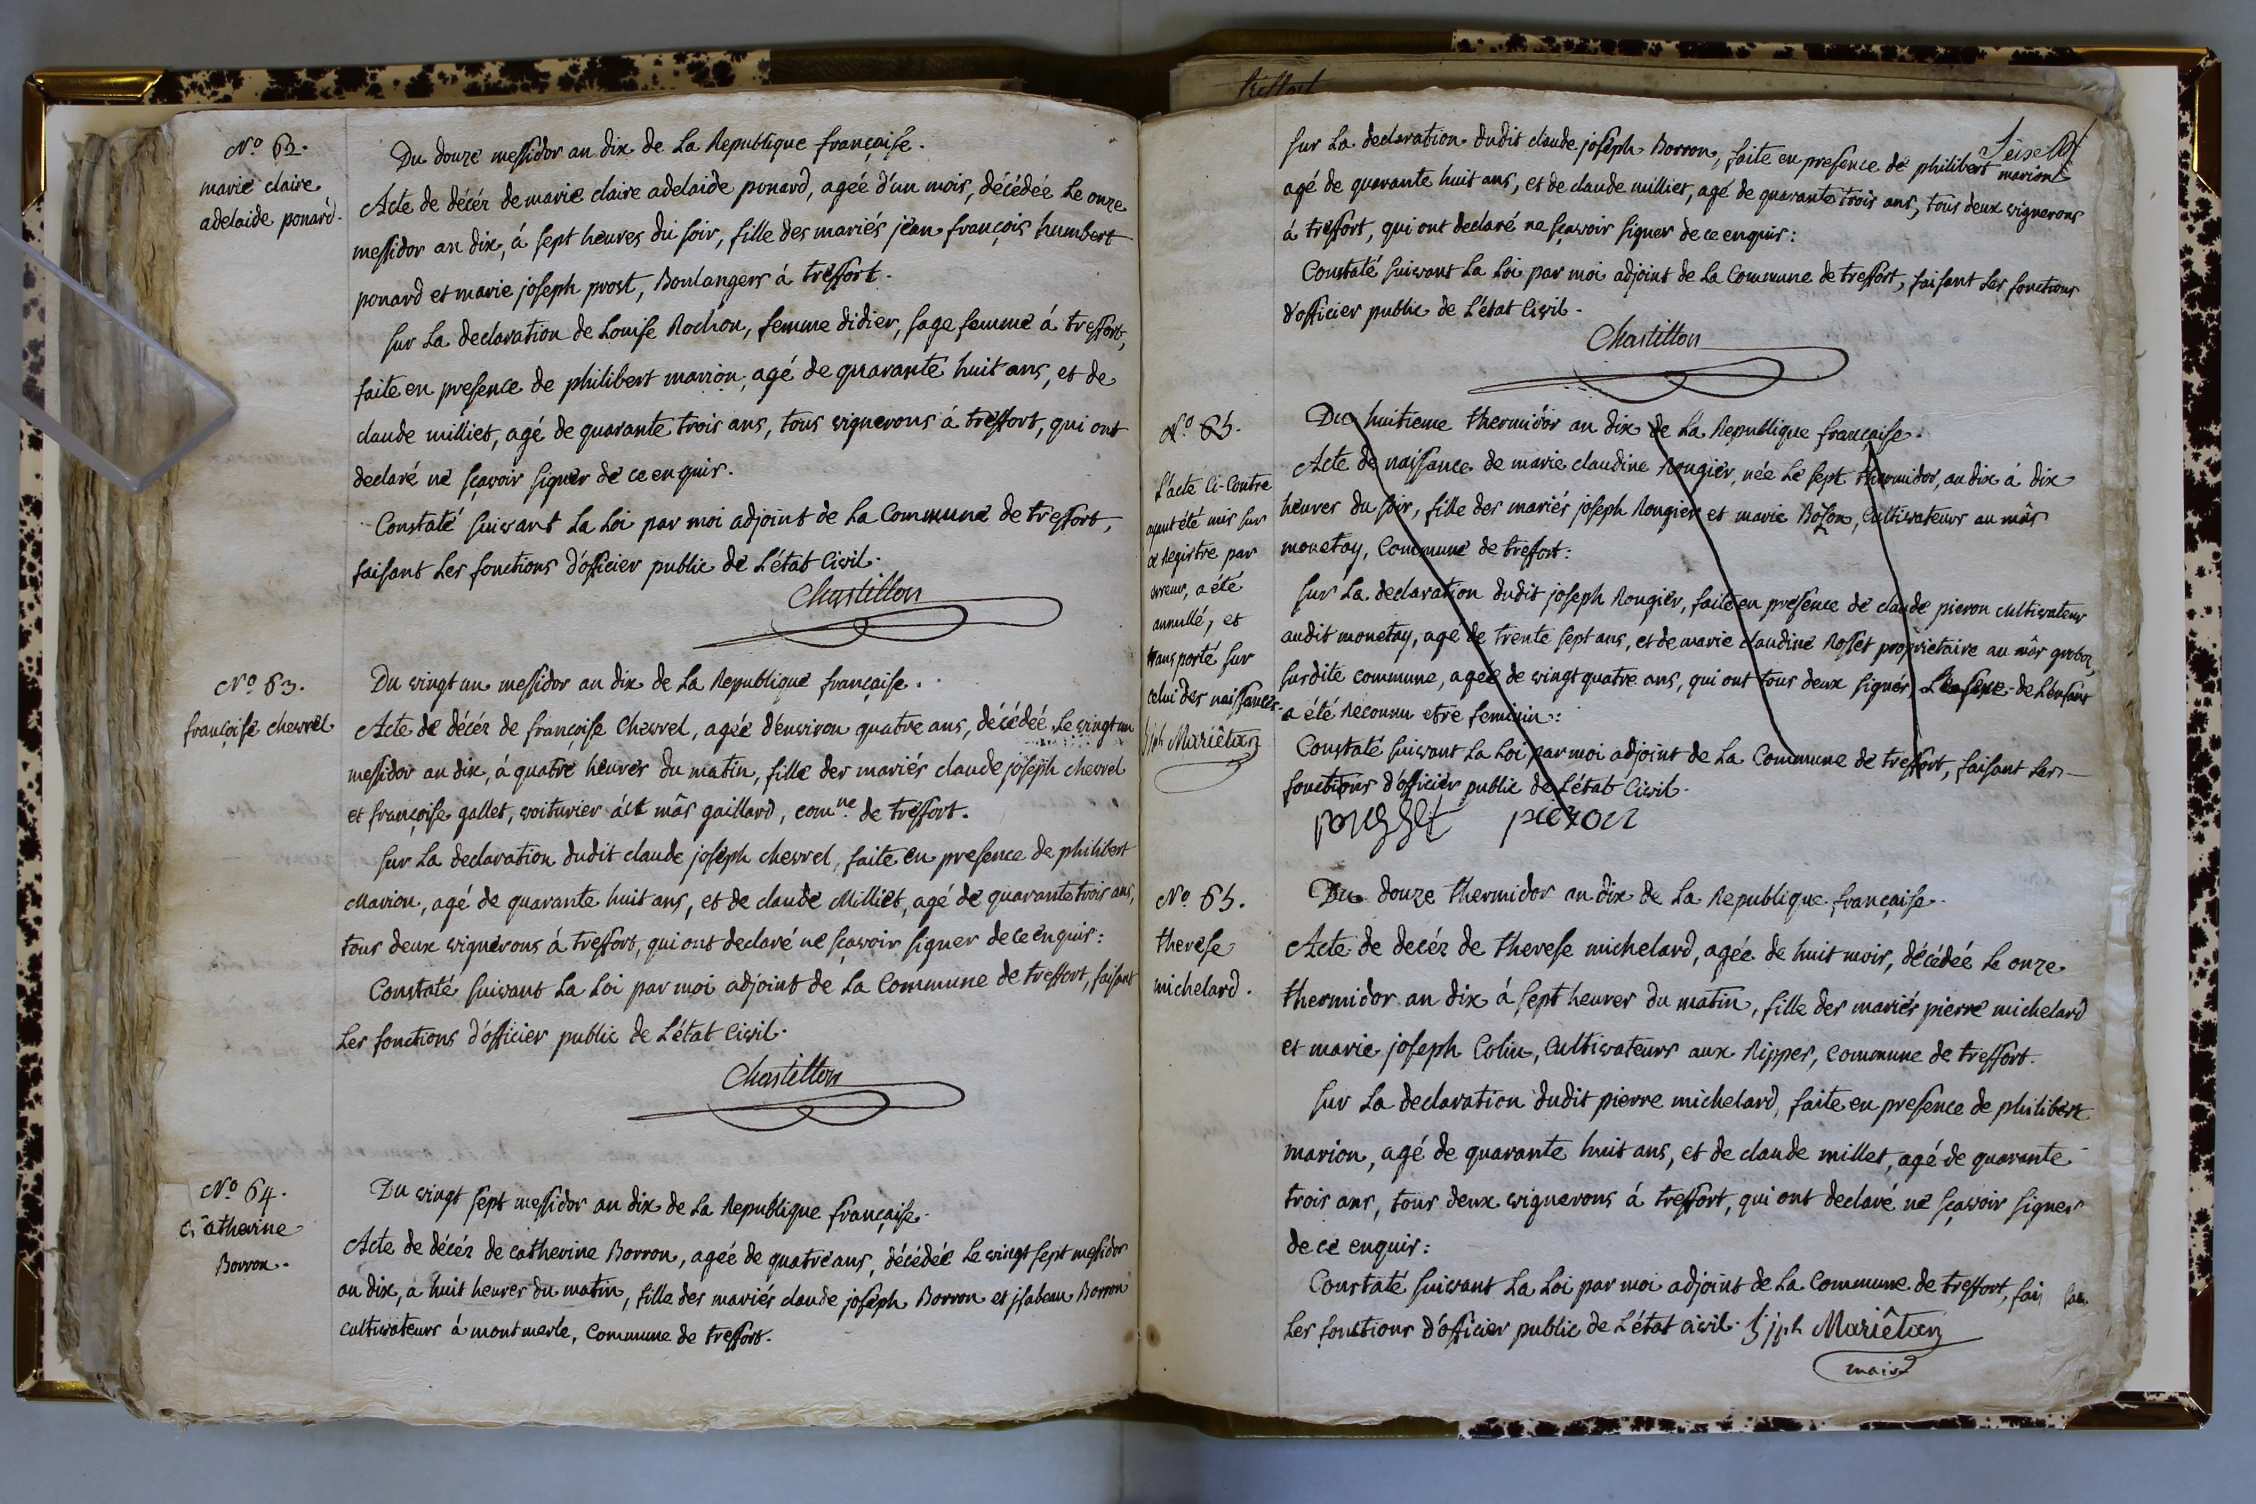 N.o 62.
marie claire
adelaide ponard.
Du douze messidor an dix de La Republique française.
Acte de décéz de marie claire adelaide ponard, agée d'un mois, décédée Le onze
messidor an dix, á sept heures du soir, fille des mariés jean françois humbert
ponard et marie joseph prost, Boulangers á treffort.
sur La declaration de Louise Rochon, femme didier, sage femme á treffort,
faite en presence de philibert marion, agé de quarante huit ans, et de
claude milliet, agé de quarante trois ans, tous vignerons á treffort, qui ont
declaré ne sçavoir signer de ce enquis.
Constaté suivant La Loi par moi adjoint de La Commune de treffort,
faisant Les fonctions d'officier public de L'état Civil.
Chastillon
N.o 63.
françoise chevrel
Du vingt un messidor an dix de La Republique française.
Acte de décéz de françoise Chevrel, agée d'environ quatre ans, décédée Le vingt un
messidor an dix, á quatre heures du matin, fille des mariés claude joseph chevrel
et françoise gallet, voiturier á mâs gaillard, com.ne de treffort.
sur La declaration dudit claude joseph chevrel, faite en presence de philibert
Marion, agé de quarante huit ans, et de claude Milliet, agé de quarante trois ans,
tous deux vignerons á treffort, qui ont declaré ne sçavoir signer de ce enquis:
Constaté suivant La Loi par moi adjoint de La Commune de treffort, faisant
Les fonctions d'officier public de L'état Civil.
Chastillon
N.o 64.
Catherine
Borron.
Du vingt sept messidor an dix de La Republique française.
Acte de décéz de catherine Borron, agée de quatre ans, décédée Le vingt sept messidor
an dix, á huit heures du matin, fille des mariés claude joseph Borron et jsabeau Borron
cultivateurs á mont merle, Commune de treffort.
sur La declaration dudit claude joseph Borron, faite en presence de philibert marion
agé de quarante huit ans, et de claude milliet, agé de quarante trois ans, tous deux vignerons
á treffort, qui ont declaré ne sçavoir signer de ce enquis:
Constaté suivant La Loi par moi adjoint de La Commune de treffort, faisant Les fonctions
d'officier public de L'état Civil.
Chastillon
N.o 65.
L'acte Ci-Contre
ayant été mis sur
ce Registre par
erreur, a été
annullé, et
transporté sur
celui des naissances.
Mariêtan
Du huitieme thermidor an dix de La Republique française.
Acte de naissance de marie claudine Rougier, née Le sept thermidor, an dix á dix
heures du soir, fille des mariés joseph Rougier et marie Bozon, Cultivateurs au mâs
monetay, Commune de treffort:
sur La declaration dudit joseph Rougier, faite en presence de claude pieron cultivateur
audit monetay, agé de trente sept ans, et de marie claudine Rosset proprietaire au mâs groboz,
susdite commune, agée de vingt quatre ans, qui ont tous deux signés, Le sexe de L'enfant
a été Reconnu etre feminin:
Constaté suivant La Loi par moi adjoint de La Commune de treffort, faisant Les
fonctions d'officier public de L'état Civil.
pieron
N.o 65.
therese
michelard.
Du douze thermidor an dix de La Republique française.
Acte de decéz de therese michelard, agée de huit mois, décédée Le onze
thermidor an dix á sept heures du matin, fille des mariés pierre michelard
et marie joseph Colin, Cultivateurs aux Rippes, commune de treffort.
sur La declaration dudit pierre michelard, faite en presence de philibert
marion, agé de quarante huit ans, et de claude millet, agé de quarante
trois ans, tous deux vignerons á treffort, qui ont declaré ne sçavoir signer
de ce enquis:
Constaté suivant La Loi par moi adjoint de La Commune de treffort,
Les fonctions d'officier public de L'état Civil. Mariêtan
maire